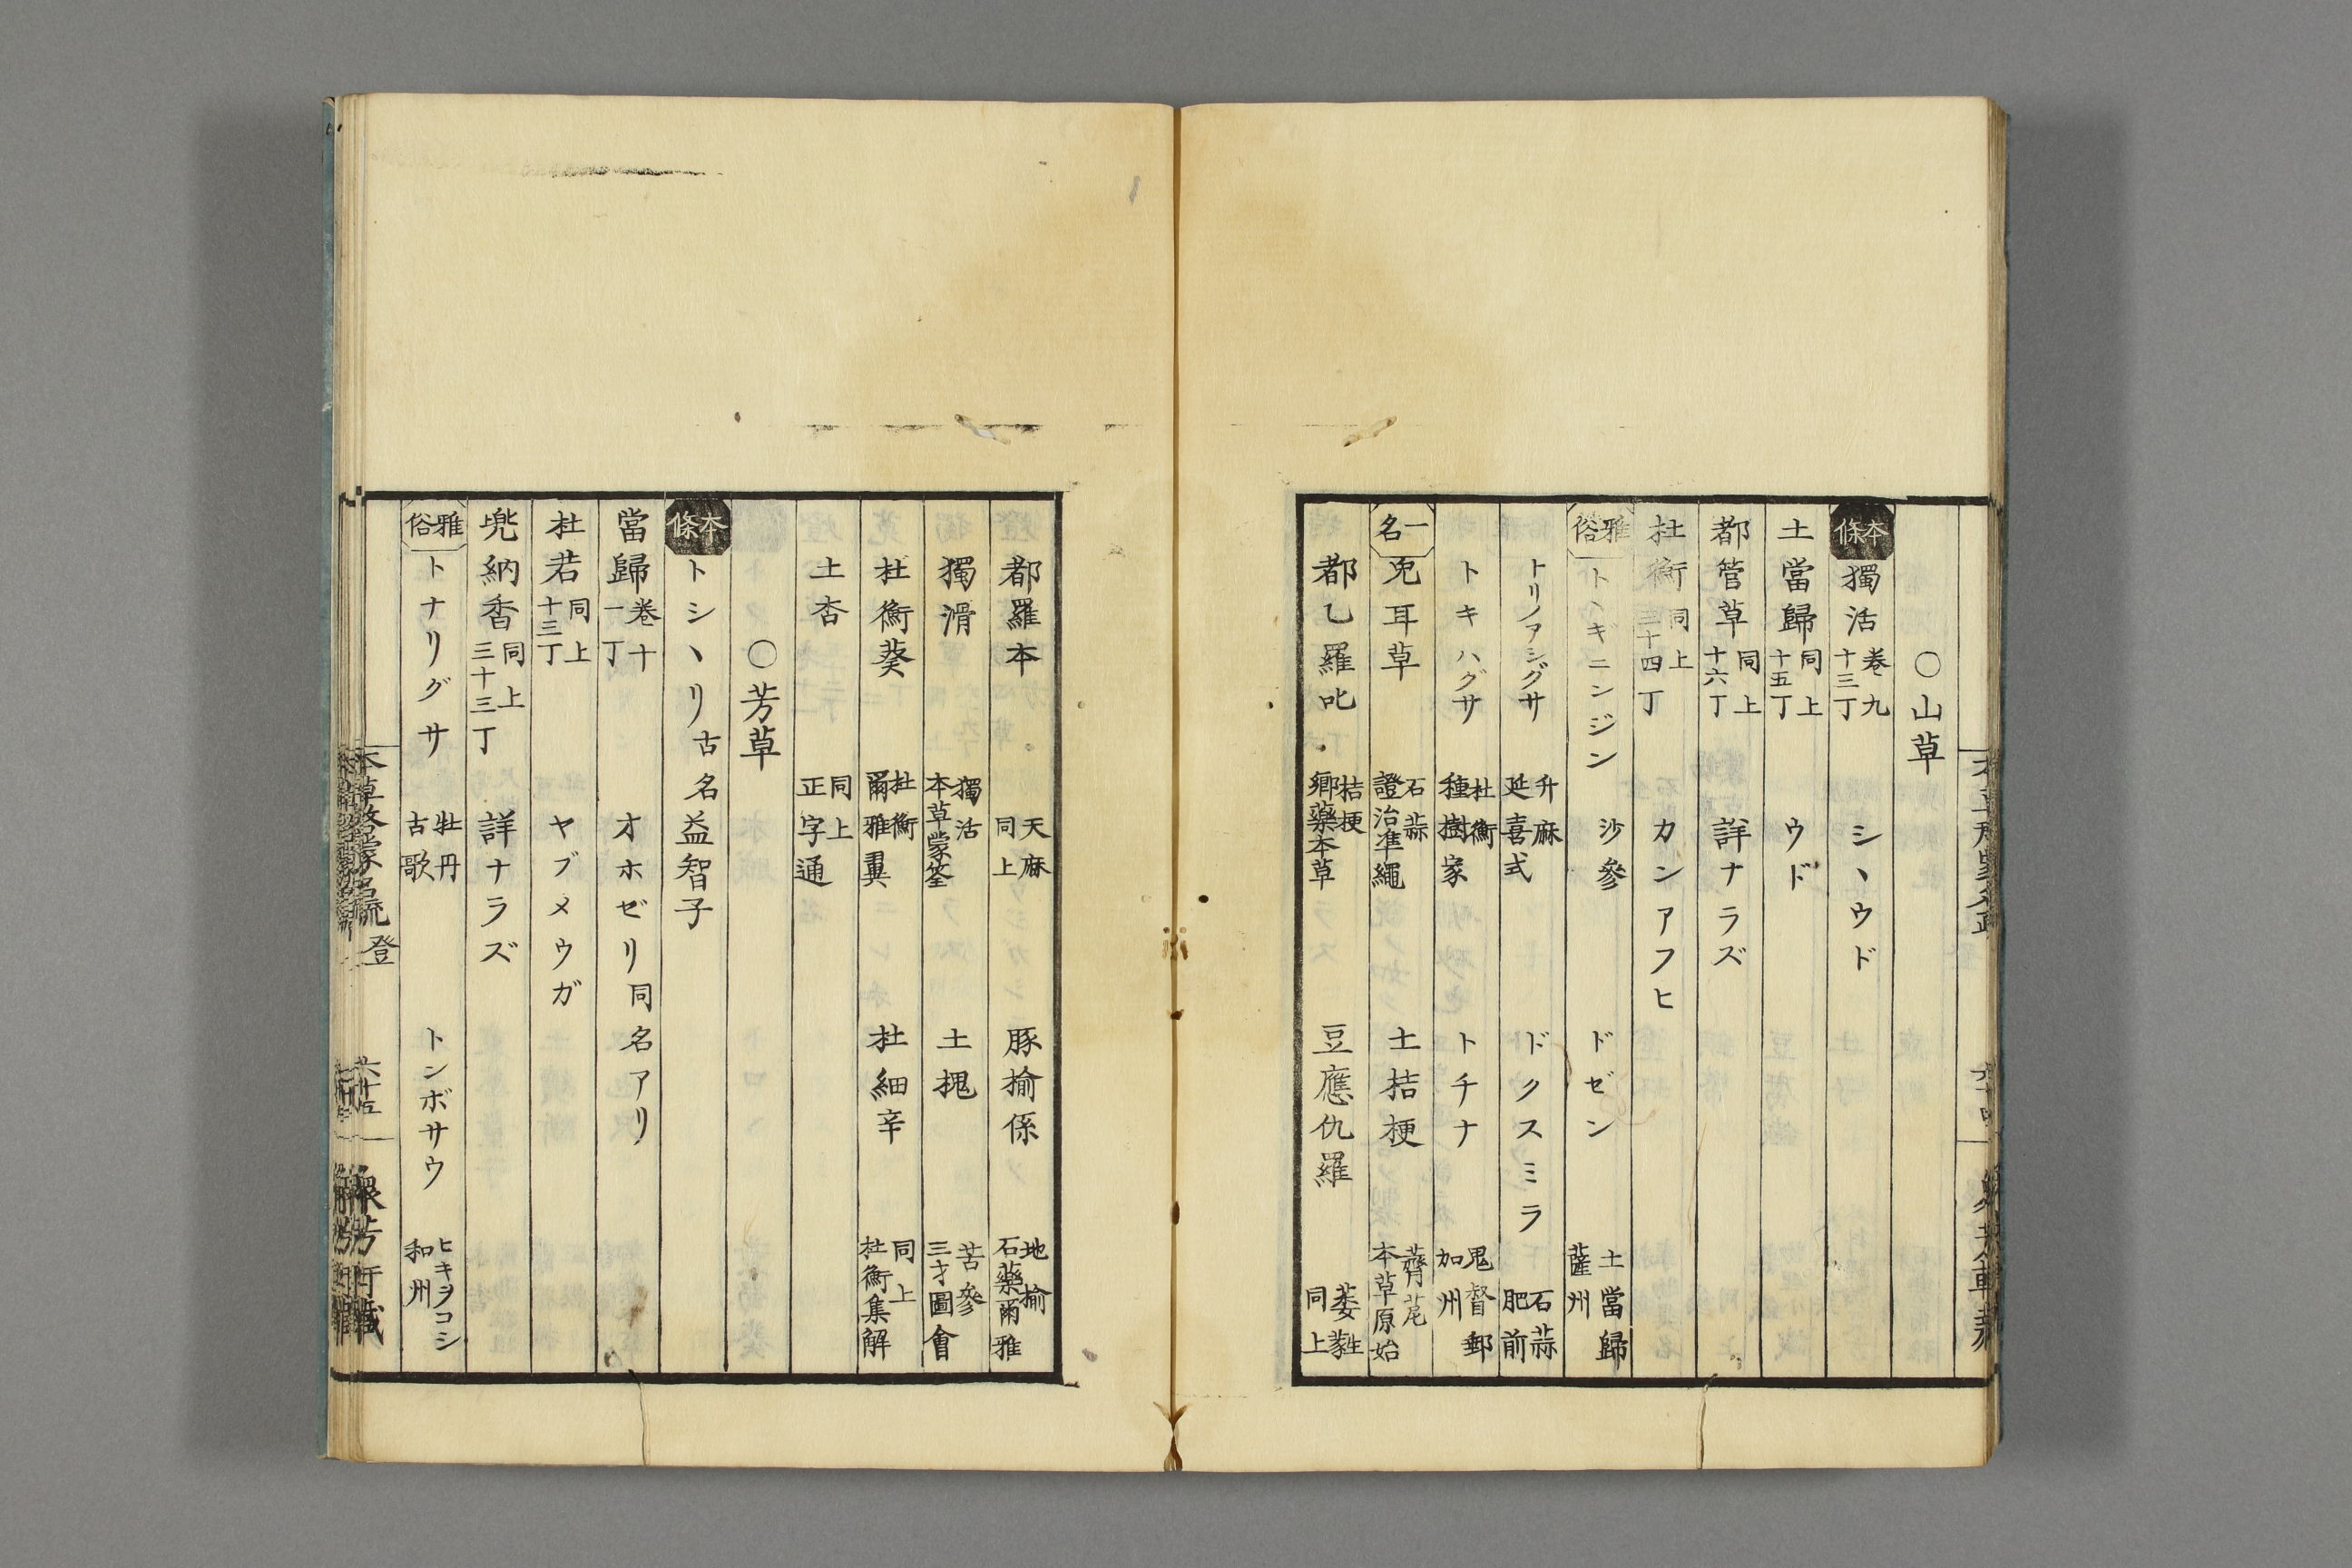 〇山草
本條 獨活 卷九十三丁 シヽウド
土當歸 同上十五丁 ウド
都管草 同上十六丁 詳ナラズ
杜衡 同上三十四丁 カンアフヒ
雅俗 トヽギニンジン 沙參 ドゼン 土當歸薩州
トリノアシグサ 升麻延喜式 ドクスミラ 石蒜肥前
トキハグサ 杜衡種樹家 トチナ 鬼督郵加州
一名 兎耳草 石蒜證治準繩 土桔梗 薺苨本草原始
都乙羅叱 桔梗鄉藥本草 豆應仇羅 萎蕤同上
都羅本 天麻同上 豚揄係 地揄石藥爾雅
獨滑 獨活本草蒙筌 土槐 苦參三才圖會
杜衡葵 杜衡爾雅翼 杜細辛 同上杜衡集解
土杏 同上正字通
〇芳草
本條 トシヽリ古名 益智子
當歸 卷十一丁 オホゼリ同名アリ
杜若 同上十三丁 ヤブメウガ
兠納香 同上三十三丁 詳ナラズ
雅俗 トナリグサ 牡丹古歌 トンボサウ ヒキヲコシ和州
本草啓蒙名疏 登 六十五